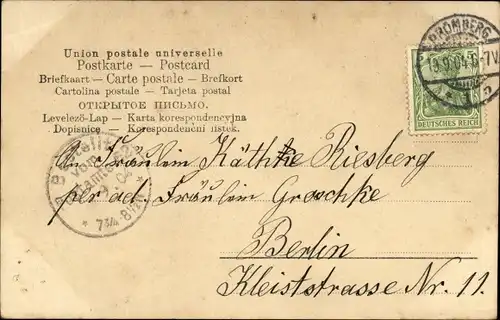 Union postale universelle
Postkarte — Postcard
Briefkaart — Carte postale — Brefkort
Cartolina postale — Tarjeta postal
ОТКРЫТОЕ ПИСЬМО.
Levelező-Lap — Karta korespondencyjna
Dopisnice — Korespondenční lístek.
BROMBERG
DEUTSCHES REICH
Bestellt
vom
Postamte
7¾-8½N
An Fräulein Käthe Riesberg
per ad. Fräulein Groschke
Berlin
Kleiststrasse Nr. 11.